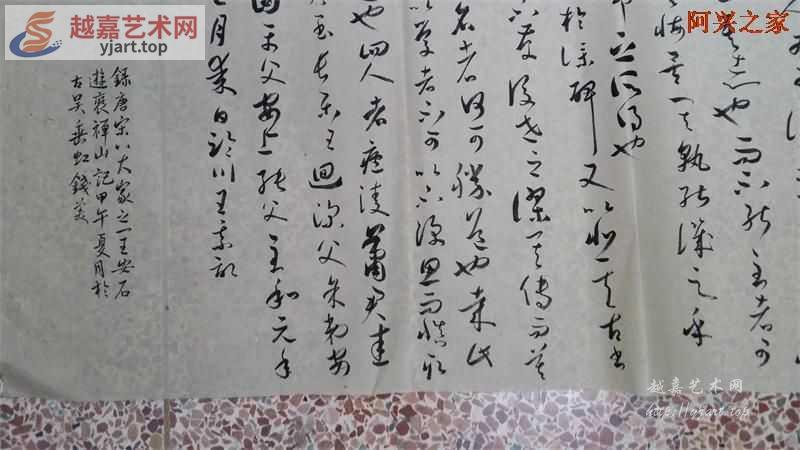 志也而不能至者可
悔矣其孰能譏之乎
之所得也
於仆碑又以悲夫古書
不存後世之謬其傳而莫
名者何可勝道也哉此
以學者不可以不深思而慎取
也四人者廬陵蕭君圭
玉長樂王回深父余弟安
國平父安上純父至和元年
月某日臨川王某記
錄唐宋八大家之一王安石
遊褒禅山記甲午夏月於
古吴垂虹錢
越嘉艺术网
yjart.top
阿兴之家
越嘉艺术网
http://yjart.top